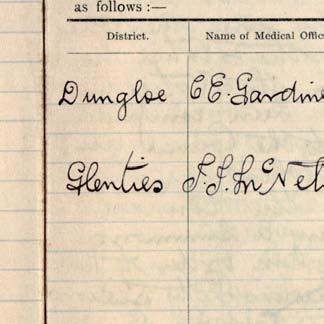 as follows :—
District. Name of Medical Offic
Dungloe C E. Gardine
Glenties J. J. McNel